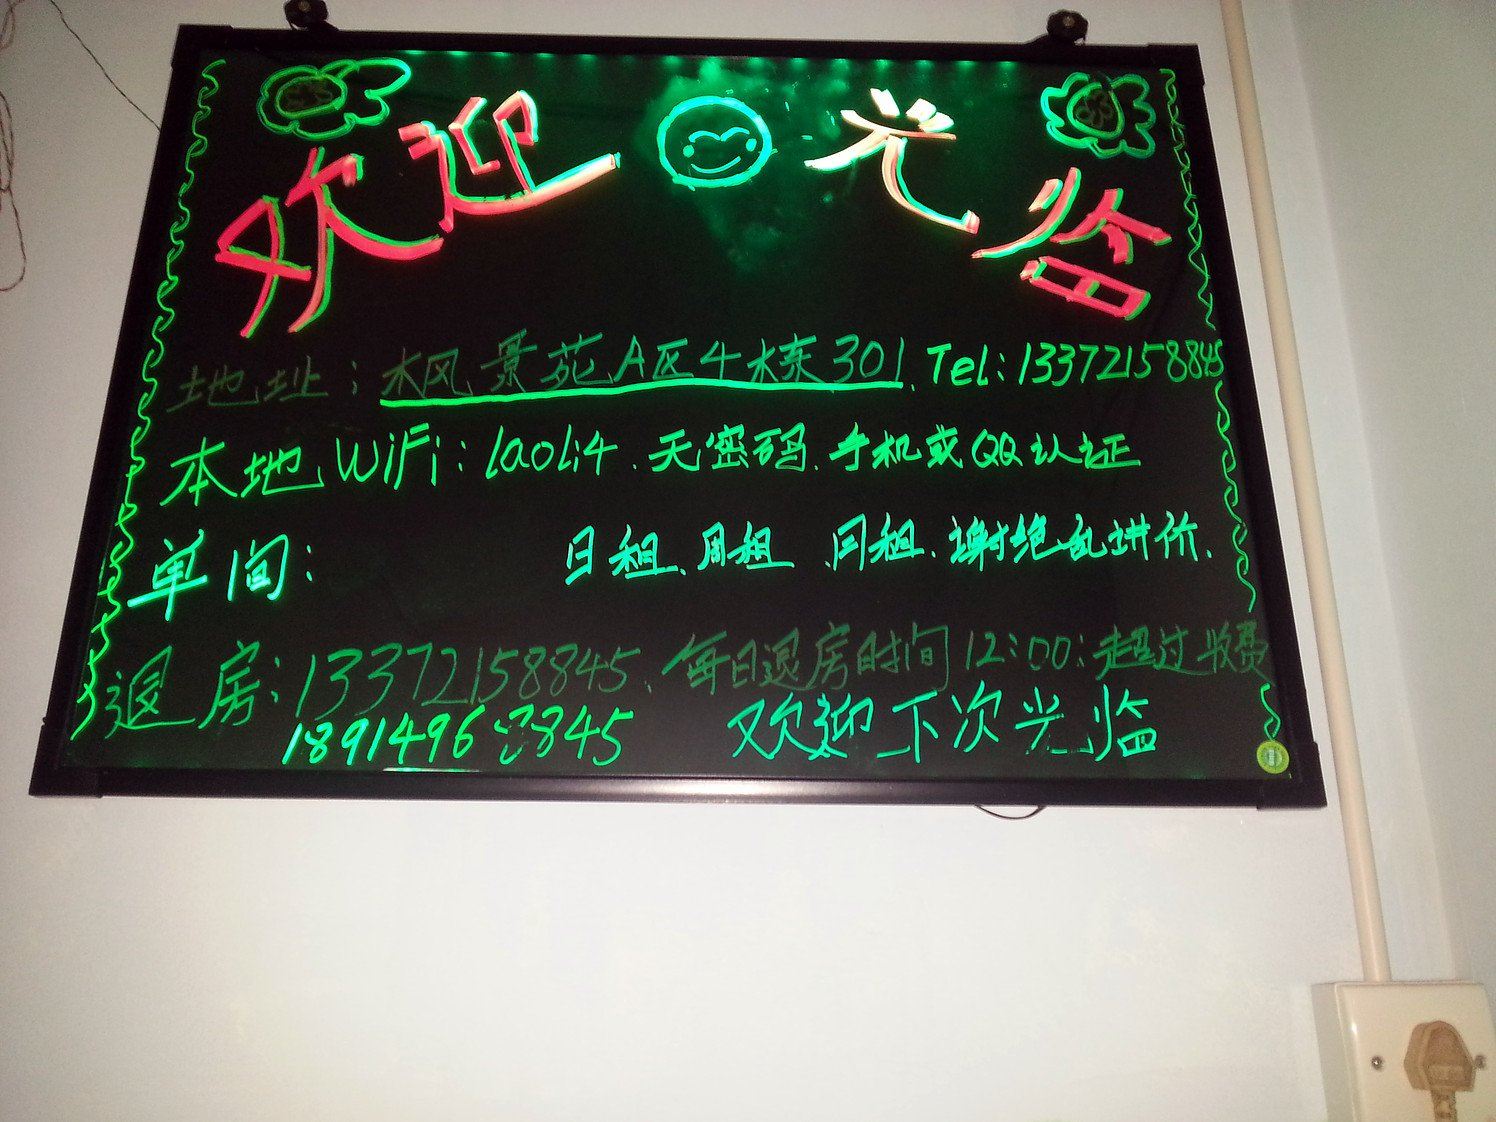 欢迎光临
地址：枫景苑A区4栋301. Tel：13372158845
本地WiFi：laoli4.无密码.手机或QQ认证
单间： 日租.周租.月租.谢绝乱讲价.
退房：13372158845.每日退房时间12:00：超过收费
18914968845 欢迎下次光临